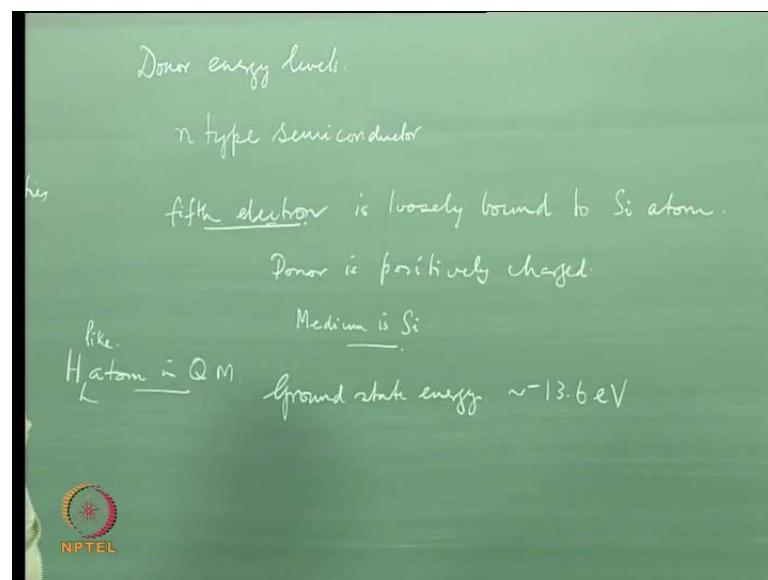 Donor energy levels.
n type semiconductor
fifth electron is loosely bound to Si atom.
Donor is positively charged.
Medium is Si.
like.
H atom in QM.
Ground state energy. ~ -13.6 eV
NPTEL